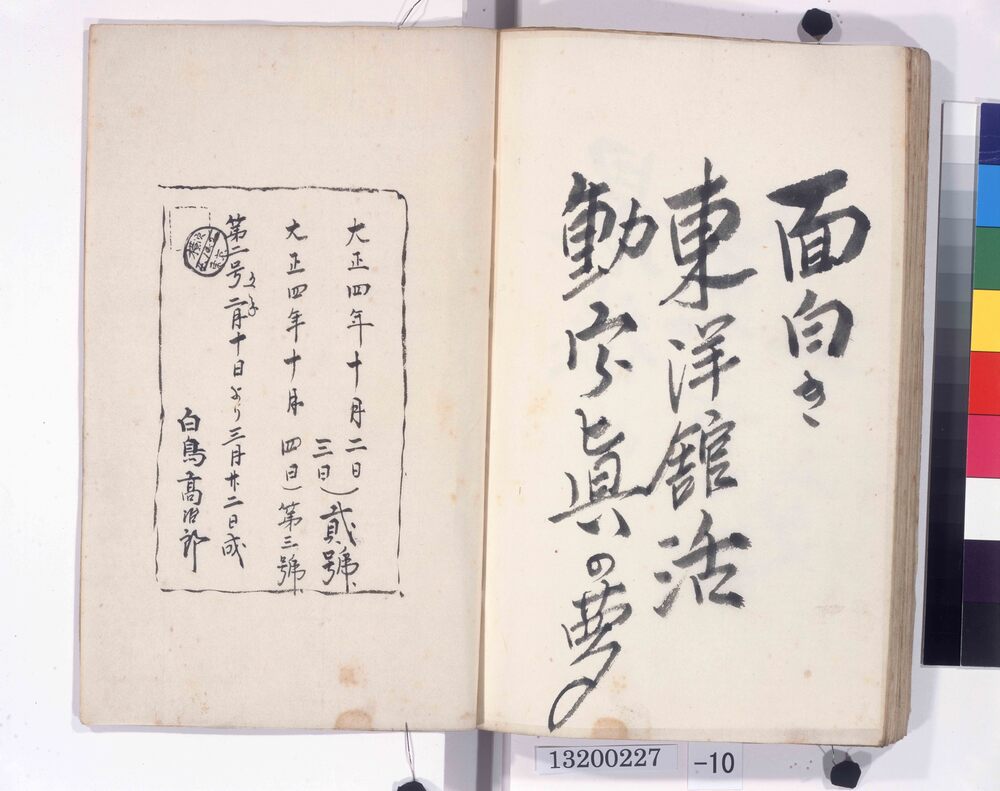 面白き
東洋舘活
動寫眞の夢
大正四年十月二日)
三日
貳號
大正四年十月四日)第三號
第二号 二月十日より三月廿二日成
白鳥高治郎
13200227
-10